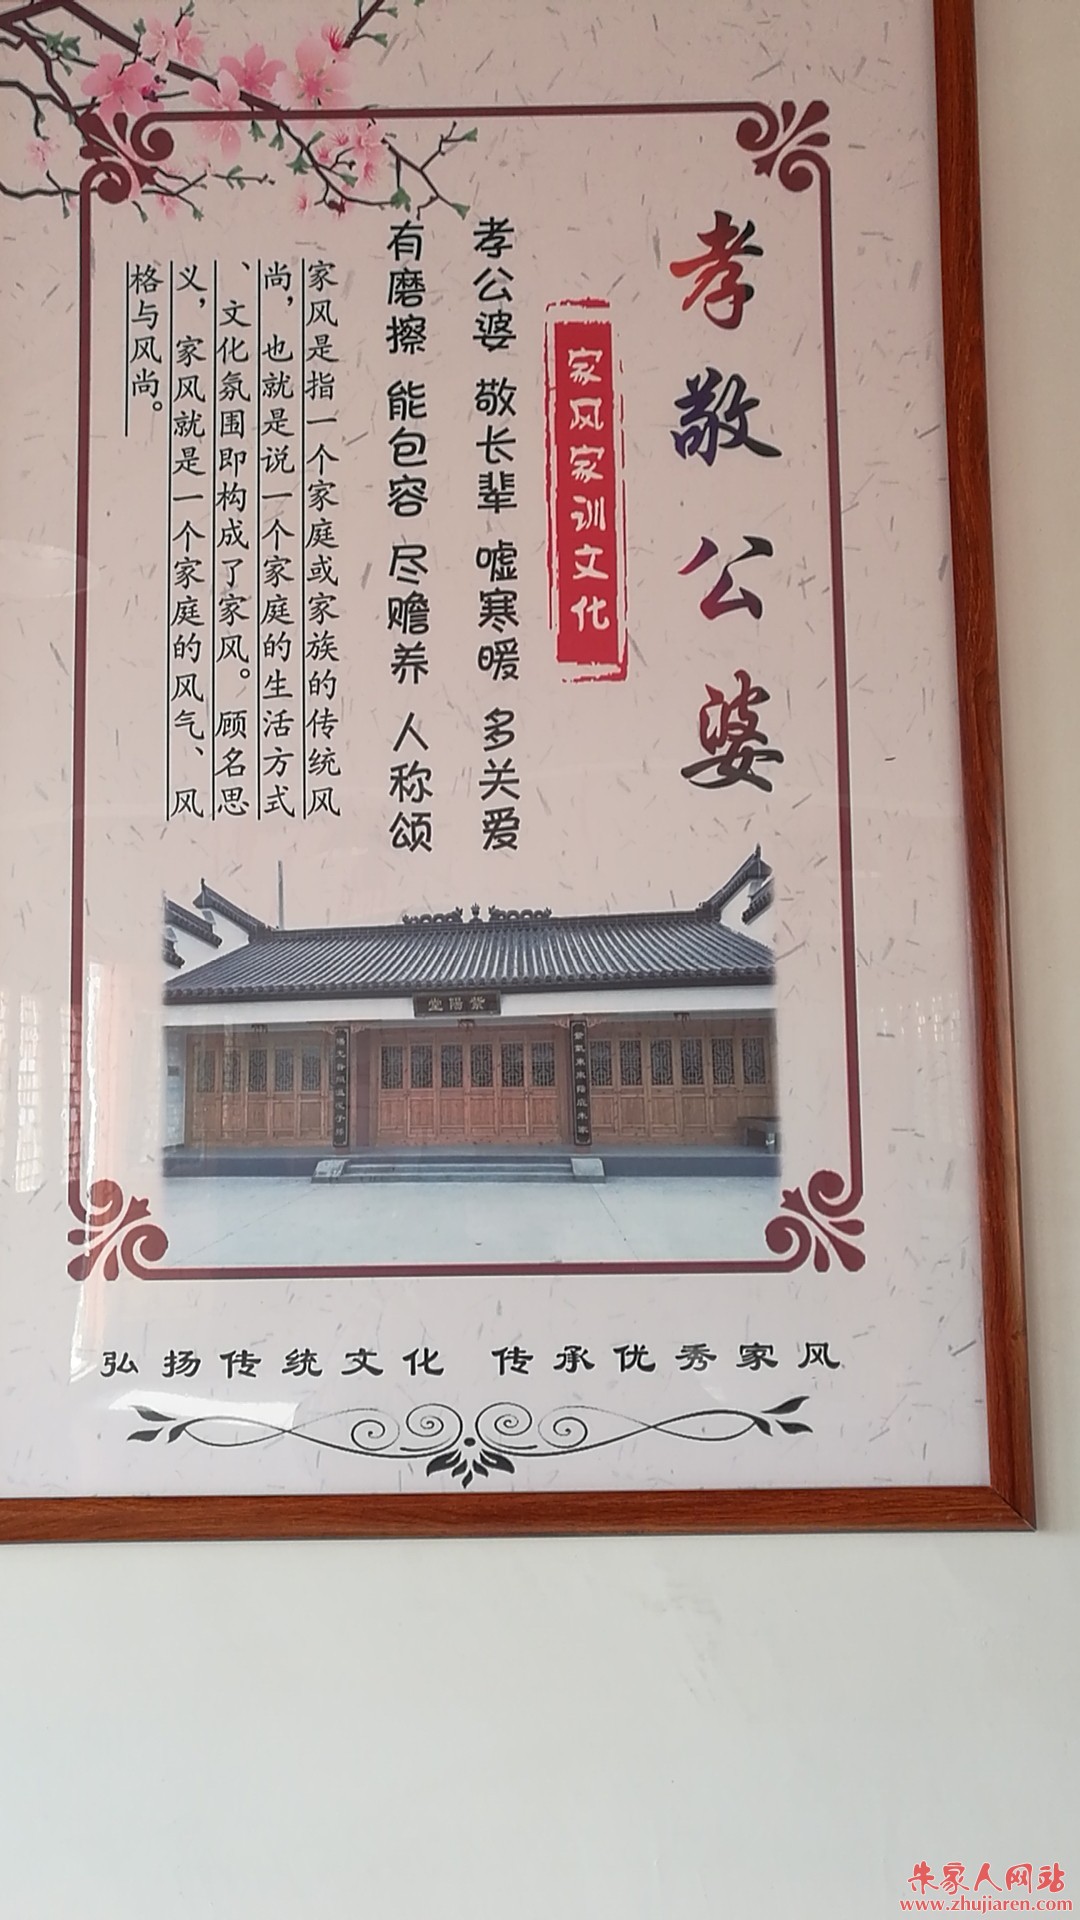 孝敬公婆
家风家训文化
孝公婆 敬长辈 嘘寒暖 多关爱
有磨擦 能包容 尽赡养 人称颂
家风是指一个家庭或家族的传统风
尚，也就是说一个家庭的生活方式
、文化氛围即构成了家风。顾名思
义，家风就是一个家庭的风气、风
格与风尚。
紫陽堂
弘扬传统文化 传承优秀家风
朱家人网站
www.zhujiaren.com